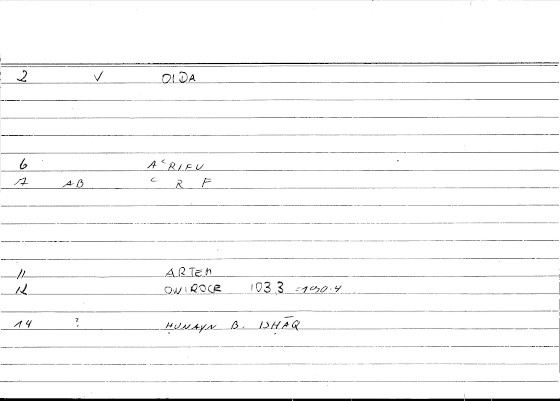 2 V OIDA
6 AʿRIFU
7 AB ʿ R F
11 ARTEM
12 ONIROCR 103.3 = 190.4
14 ? ḤUNAYN B. ISḤĀQ